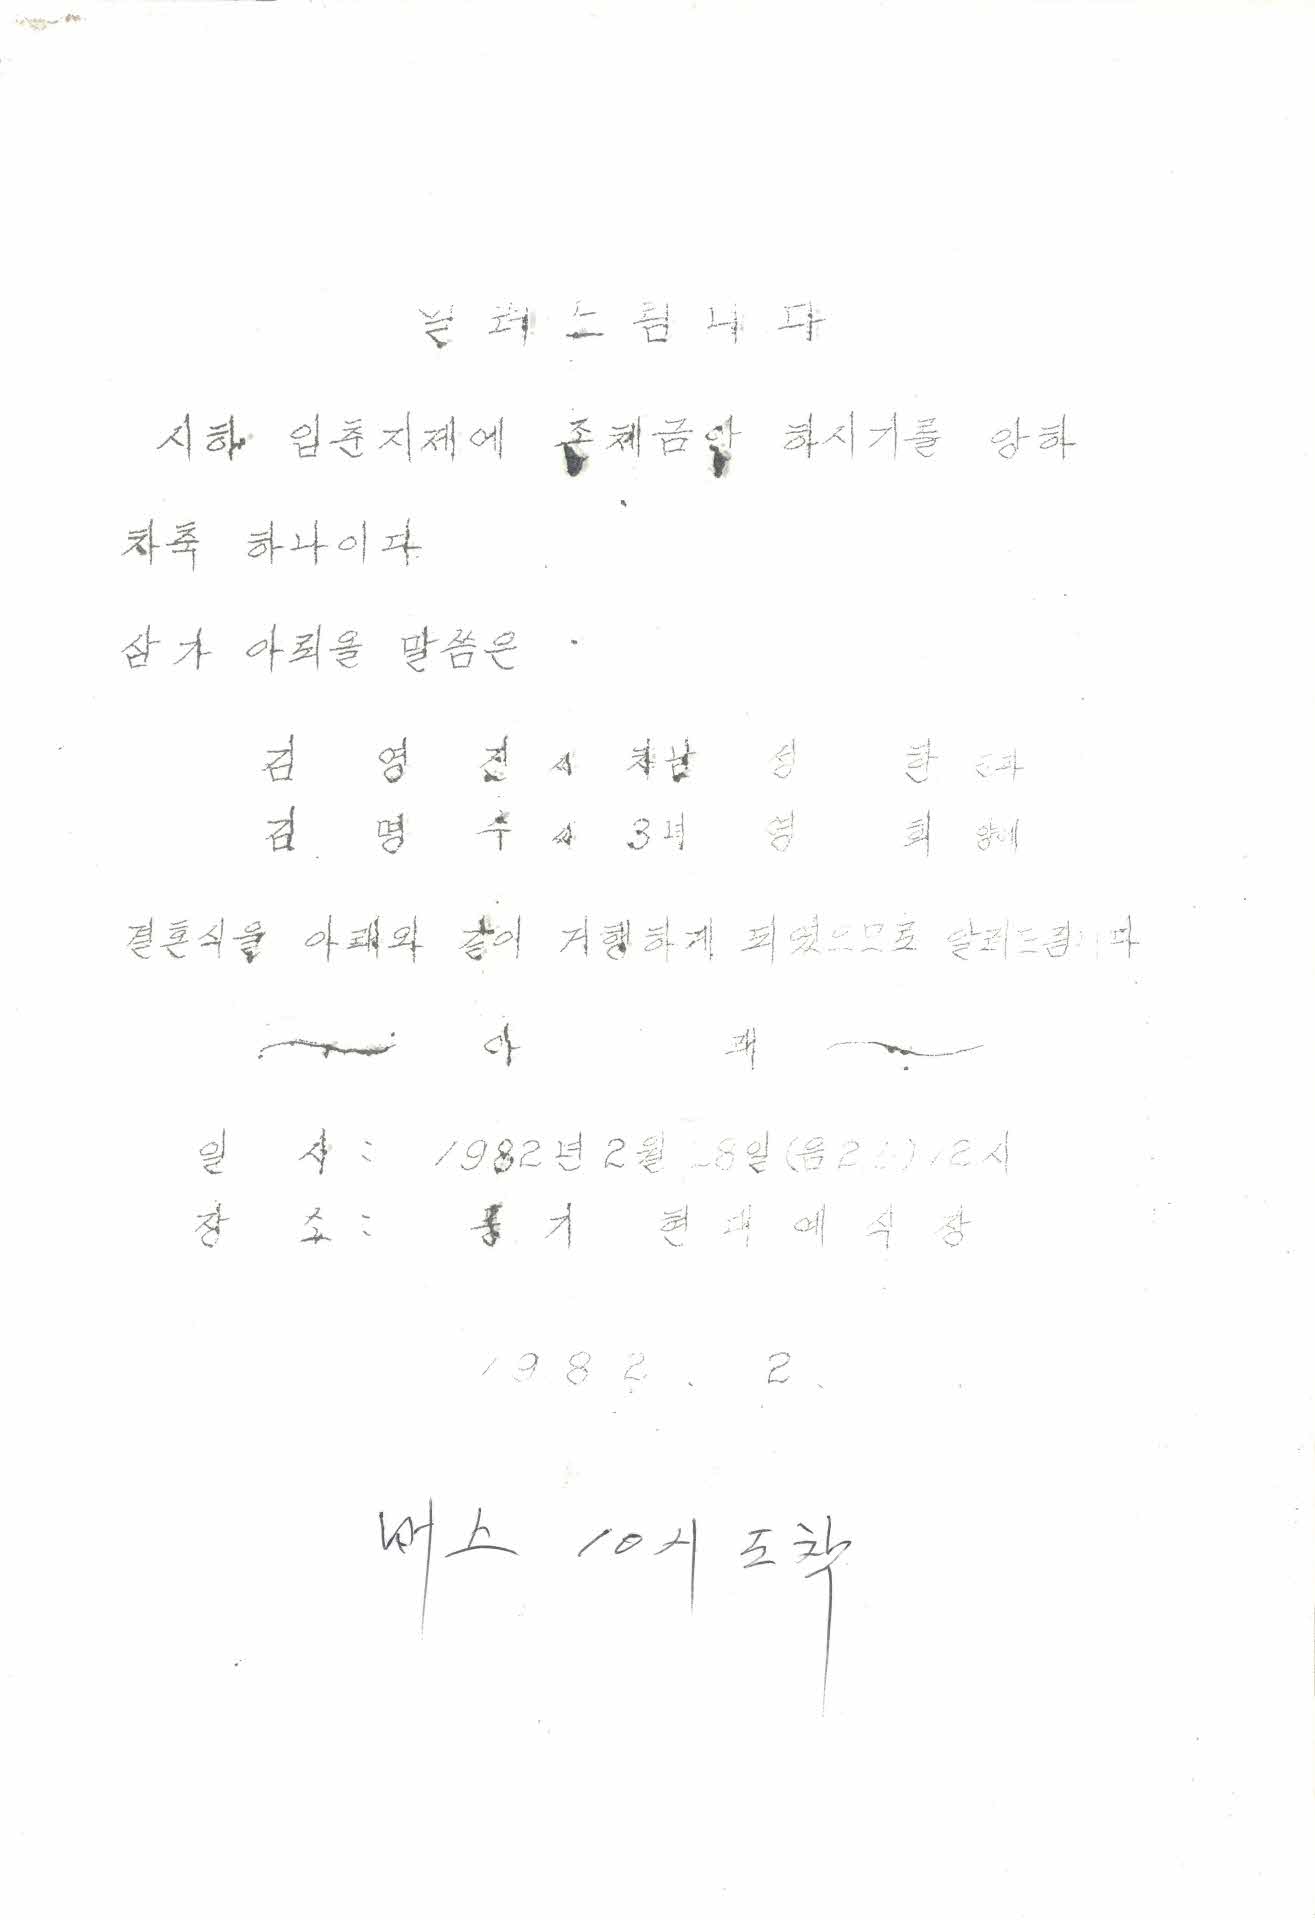 알려드립니다
시하 입춘지제에 존체금안 하시기를 앙하
차축 하나이다
삼가 아뢰올 말씀은
김 영 진 씨 차남 성 환 군과
김 명 수 씨 3녀 영 희 양에
결혼식을 아래와 같이 거행하게 되였으므로 알려드립니다
아 래
일 시: 1982년 2월 8일(음2 ) 12시
장 소: 풍기 현대예식장
1982. 2.
버스 10시 도착